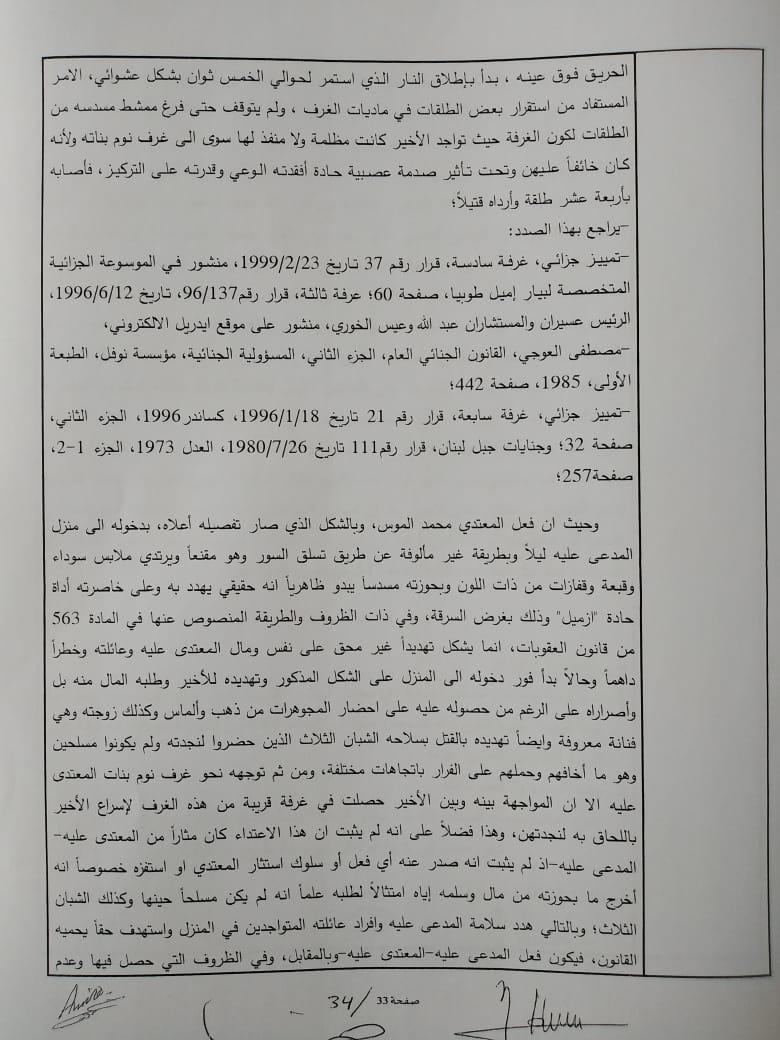 الحريق فوق عينه ، بدأ بإطلاق النار الذي استمر لحوالي الخمس ثوان بشكل عشوائي، الامر
المستفاد من استقرار بعض الطلقات في ماديات الغرف ، ولم يتوقف حتى فرغ ممشط مسدسه من
الطلقات لكون الغرفة حيث تواجد الأخير كانت مظلمة ولا منفذ لها سوى الى غرف نوم بناته ولأنه
كان خائفاً عليهن وتحت تأثير صدمة عصبية حادة أفقدته الوعي وقدرته على التركيز، فأصابه
بأربعة عشر طلقة وأرداه قتيلاً؛
-يراجع بهذا الصدد:
-تمييز جزائي، غرفة سادسة، قرار رقم 37 تاريخ 1999/2/23، منشور في الموسوعة الجزائية
المتخصصة لبيار إميل طوبيا، صفحة 60؛ عرفة ثالثة، قرار رقم96/137، تاريخ 1996/6/12،
الرئيس عسيران والمستشاران عبد الله وعيس الخوري، منشور على موقع ايدريل الالكتروني،
-مصطفى العوجي، القانون الجنائي العام، الجزء الثاني، المسؤولية الجنائية، مؤسسة نوفل، الطبعة
الأولى، 1985، صفحة 442؛
-تمييز جزائي، غرفة سابعة، قرار رقم 21 تاريخ 1996/1/18، كساندر1996، الجزء الثاني،
صفحة 32؛ وجنايات جبل لبنان، قرار رقم111 تاريخ 1980/7/26، العدل 1973، الجزء 1-2،
صفحة257؛
وحيث ان فعل المعتدي محمد الموس، وبالشكل الذي صار تفصيله أعلاه، بدخوله الى منزل
المدعى عليه ليلاً وبطريقة غير مألوفة عن طريق تسلق السور وهو مقنعاً ويرتدي ملابس سوداء
وقبعة وقفازات من ذات اللون وبحوزته مسدسا يبدو ظاهرياً انه حقيقي يهدد به وعلى خاصرته أداة
حادة "ازميل" وذلك بغرض السرقة، وفي ذات الظروف والطريقة المنصوص عنها في المادة 563
من قانون العقوبات، انما يشكل تهديداً غير محق على نفس ومال المعتدى عليه وعائلته وخطراً
داهماً وحالاً بدأ فور دخوله الى المنزل على الشكل المذكور وتهديده للأخير وطلبه المال منه بل
وأصراراه على الرغم من حصوله عليه على احضار المجوهرات من ذهب وألماس وكذلك زوجته وهي
فنانة معروفة وايضاً تهديده بالقتل بسلاحه الشبان الثلاث الذين حضروا لنجدته ولم يكونوا مسلحين
وهو ما أخافهم وحملهم على الفرار باتجاهات مختلفة، ومن ثم توجهه نحو غرف نوم بنات المعتدى
عليه الا ان المواجهة بينه وبين الأخير حصلت في غرفة قريبة من هذه الغرف لإسراع الأخير
باللحاق به لنجدتهن، وهذا فضلاً على انه لم يثبت ان هذا الاعتداء كان مثاراً من المعتدى عليه-
المدعى عليه-اذ لم يثبت انه صدر عنه أي فعل أو سلوك استثار المعتدي او استفزه خصوصاً انه
أخرج ما بحوزته من مال وسلمه إياه امتثالاً لطلبه علماً انه لم يكن مسلحاً حينها وكذلك الشبان
الثلاث؛ وبالتالي هدد سلامة المدعى عليه وافراد عائلته المتواجدين في المنزل واستهدف حقاً يحميه
القانون، فيكون فعل المدعى عليه-المعتدى عليه-وبالمقابل، وفي الظروف التي حصل فيها وعدم
صفحة33 / 34